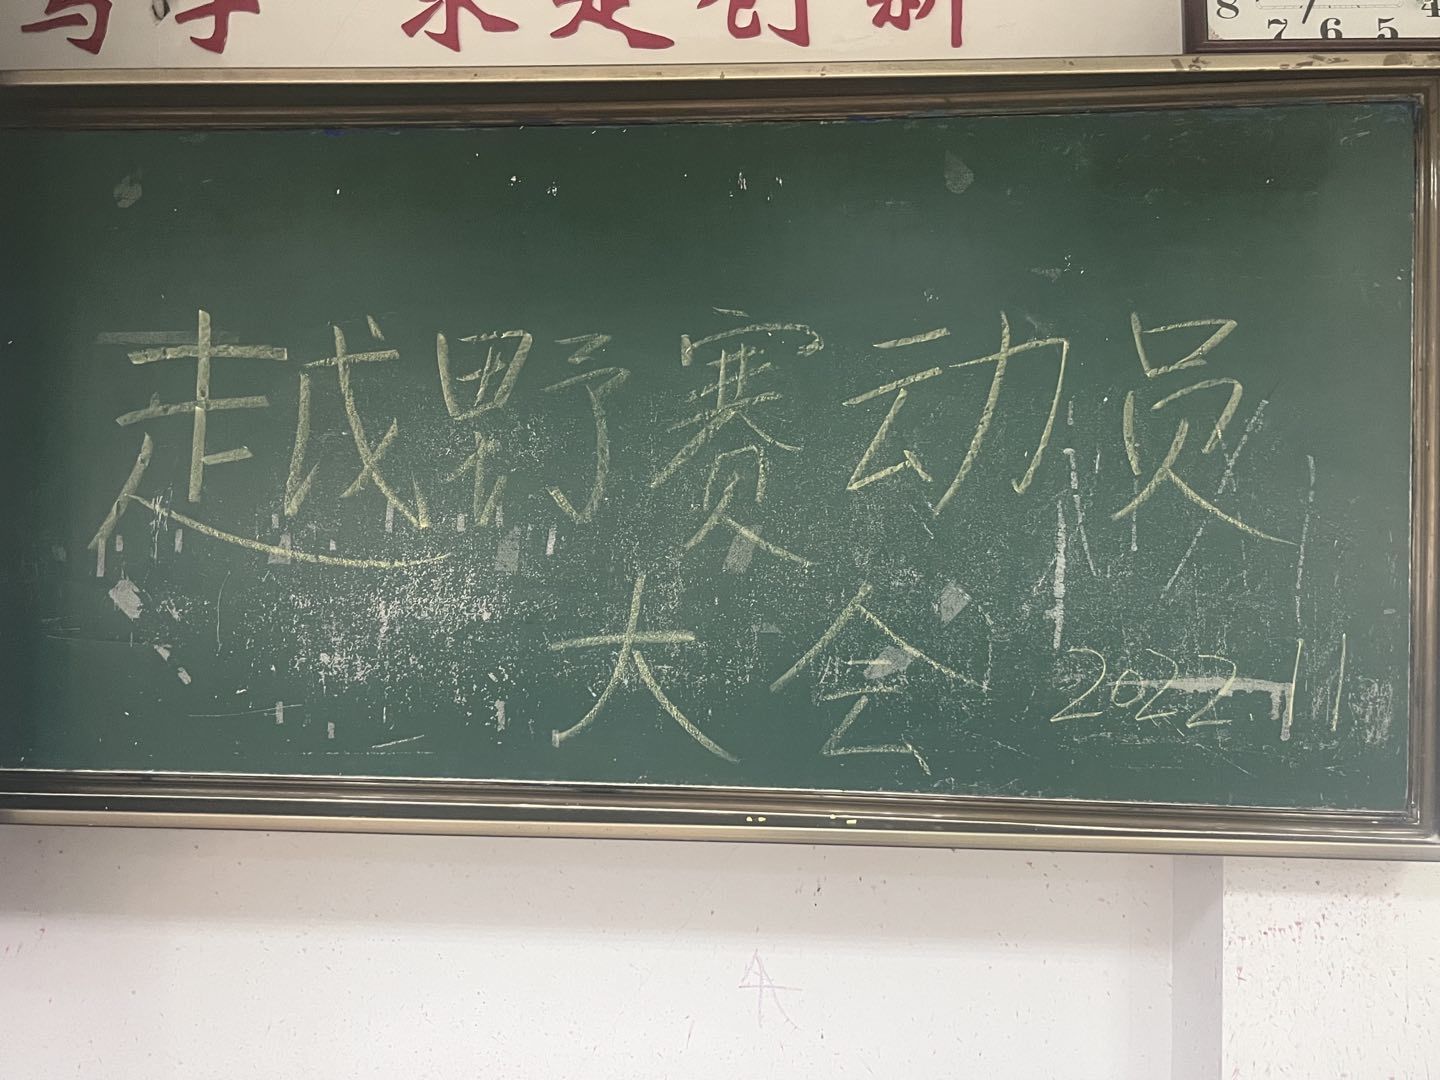 求是创新
8 7 6 5 4
越野赛动员
大会
2022.11